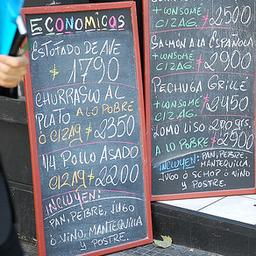 ECONOMICOS
ESTOFADO DE AVE
$1790
CHURRASCO AL
PLATO A LO POBRE
O C/ZAG $2350
1/4 POLLO ASADO
C/ZAG $2200
INCLUYEN:
PAN, PEBRE, JUGO
Ó VINO, MANTEQUILLA
Y POSTRE.
+CONSOME
C/ZAG. $2500
SALMÓN A LA ESPAÑOLA
+CONSOME $2900
C/ZAG.
PECHUGA GRILLÉ
+CONSOME $2450
C/ZAG.
LOMO LISO 250grs.
A LO POBRE $2900
INCLUYEN: PAN, PEBRE,
MANTEQUILLA,
JUGO Ó SCHOP Ó VINO
Y POSTRE.